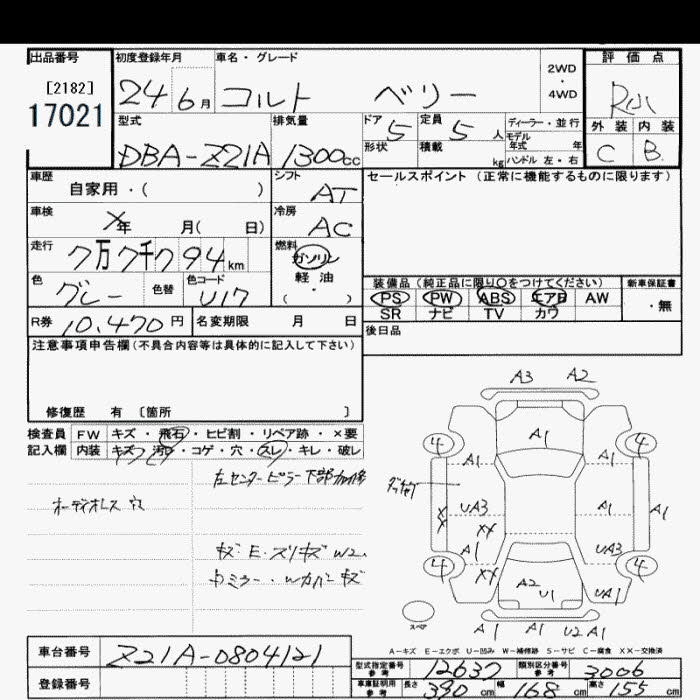 出品番号 初度登録年月 車名・グレード 2WD・4WD 評価点
[2182]
17021
24 6月 コルト ベリー
型式 排気量 ドア 5 定員 5 人 ディーラー・並行 外装 内装
形状 積載 kg モデル年式 年 ハンドル 左・右
DBA-Z21A 1300cc C B
車歴 シフト セールスポイント (正常に機能するものに限ります)
自家用・( ) AT
車検 冷房
年 月( 日) AC
走行 燃料
7万7千794km ガソリン
軽油
色 色替 色コード ・( )
グレー U17
装備品 (純正品に限り○をつけてください) 新車保証書
PS PW ABS エアB AW ・無
SR ナビ TV カワ
R券 10,470円 名変期限 月 日 後日品
注意事項申告欄(不具合内容等は具体的に記入して下さい)
修復歴 有 〔箇所 〕
検査員 FW キズ・飛石・ヒビ割・リペア跡・×要
記入欄 内装 キズ・汚れ・コゲ・穴・スレ・キレ・破レ
左センターピラー下部
オーディオレス 穴
キズ・E・スリキズ W2
A3 A2
4 A1 4
A1 A1
UA3 A1 A1
XX
A1 UA3
4 XX A2 U1 4
UA1
スペア A1 A1 U2 A1
A-キズ E-エクボ U-凹み W-補修跡 S-サビ C-腐食 XX-交換済
車台番号 Z21A-0804121
型式指定番号 参考 12637 類別区分番号 参考 3006
登録番号
車庫証明用 参考 長さ 390 cm 幅 168 cm 高さ 155 cm